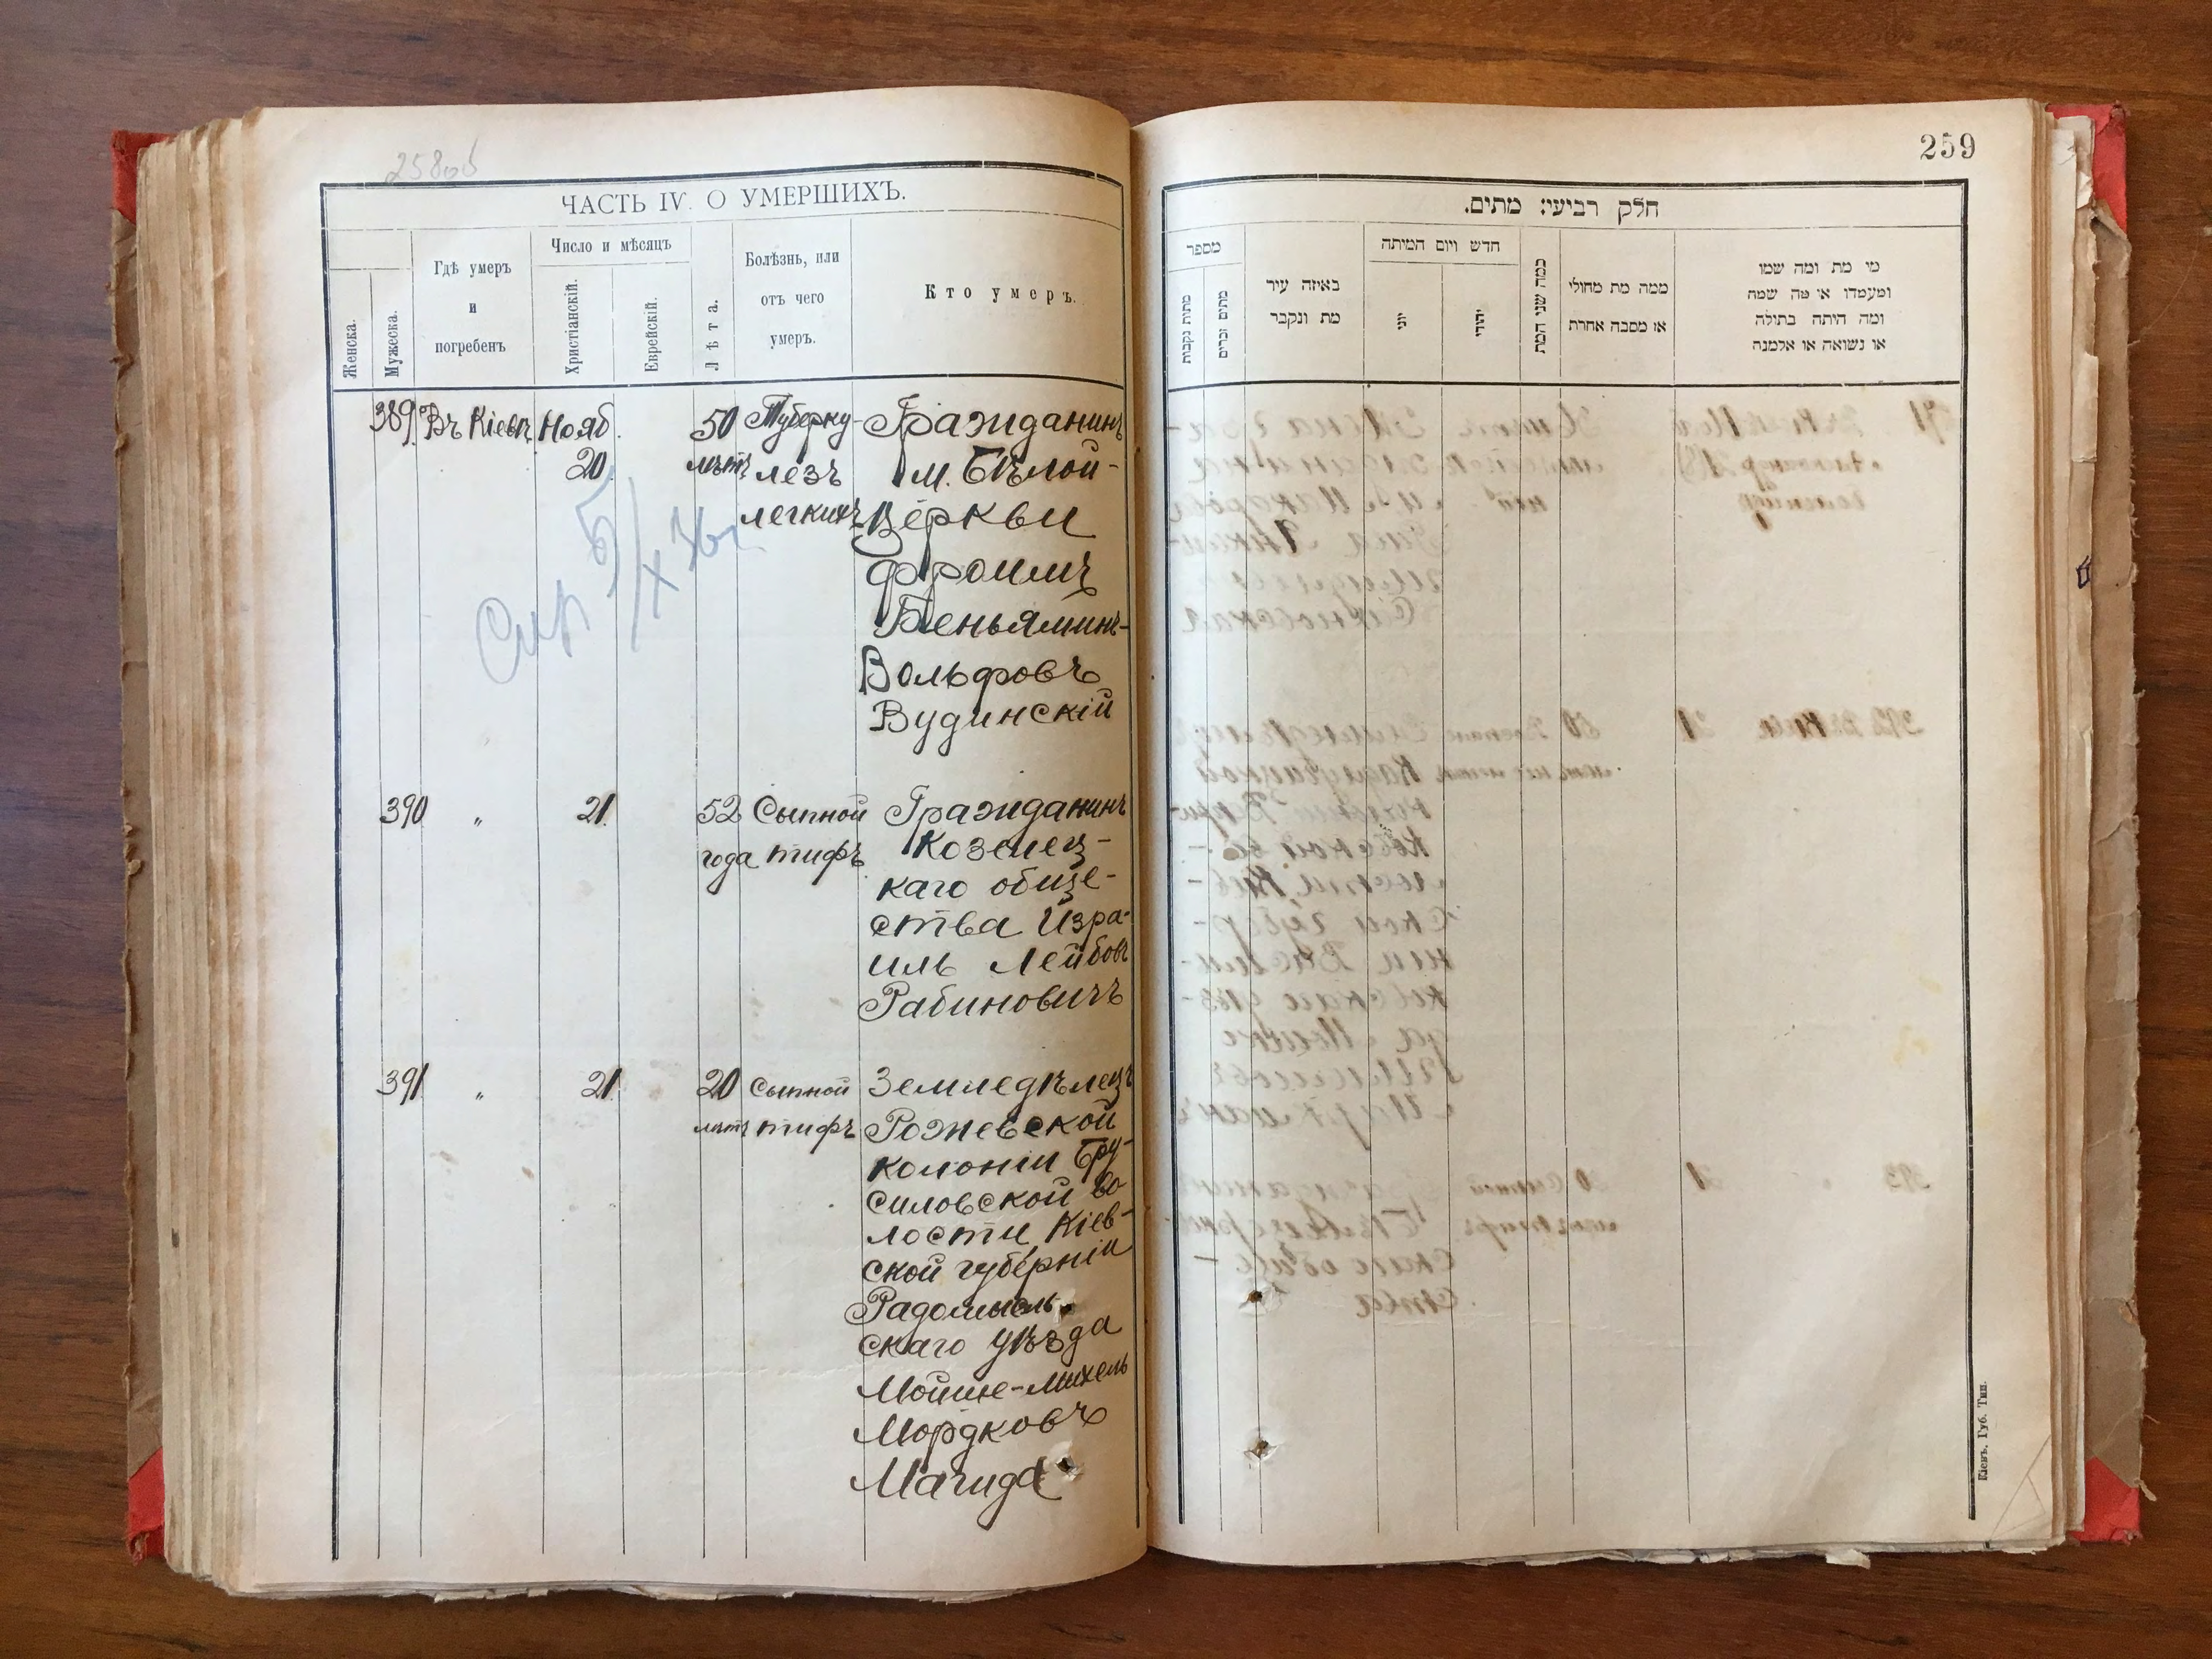 258об
ЧАСТЬ IV. О УМЕРШИХЪ.
Женска.
Мужеска.
Гдѣ умеръ
и
погребенъ
Число и мѣсяцъ
Христіанскій.
Еврейскій.
Лѣта.
Болѣзнь, или
отъ чего
умеръ.
Кто умеръ.
389. Въ Кіевѣ Нояб. 50 Туберку- Гражданинъ
20. лѣтъ лезъ м. Бѣлой-
легкихъ Церкви
Фроимъ
Беньяминъ-
Вольфовъ
Вудинскій
390 „ 21. 52 Сыпной Гражданинъ
года тифъ Козелец-
каго обще-
ства Изра-
иль Лейбовъ
Рабиновичъ
391. „ 21. 20 Сыпной Земледѣлецъ
лѣтъ тифъ Рожевской
колоніи Бру-
силовской во
лости Кіев-
ской губерніи
Радомысль-
скаго уѣзда
Мойше-Михель
Мордковъ
Магидъ
259
חלק רביעי: מתים.
מספר
מתות נקבות
מתים זכרים
באיזה עיר
מת ונקבר
חדש ויום המיתה
יוני
יהודי
כמה שני המת
ממה מת מחולי
או מסבה אחרת
מי מת ומה שמו
ומעמדו או מה שמה
ומה היתה בתולה
או נשואה או אלמנה
Кіевъ, Губ. Тип.